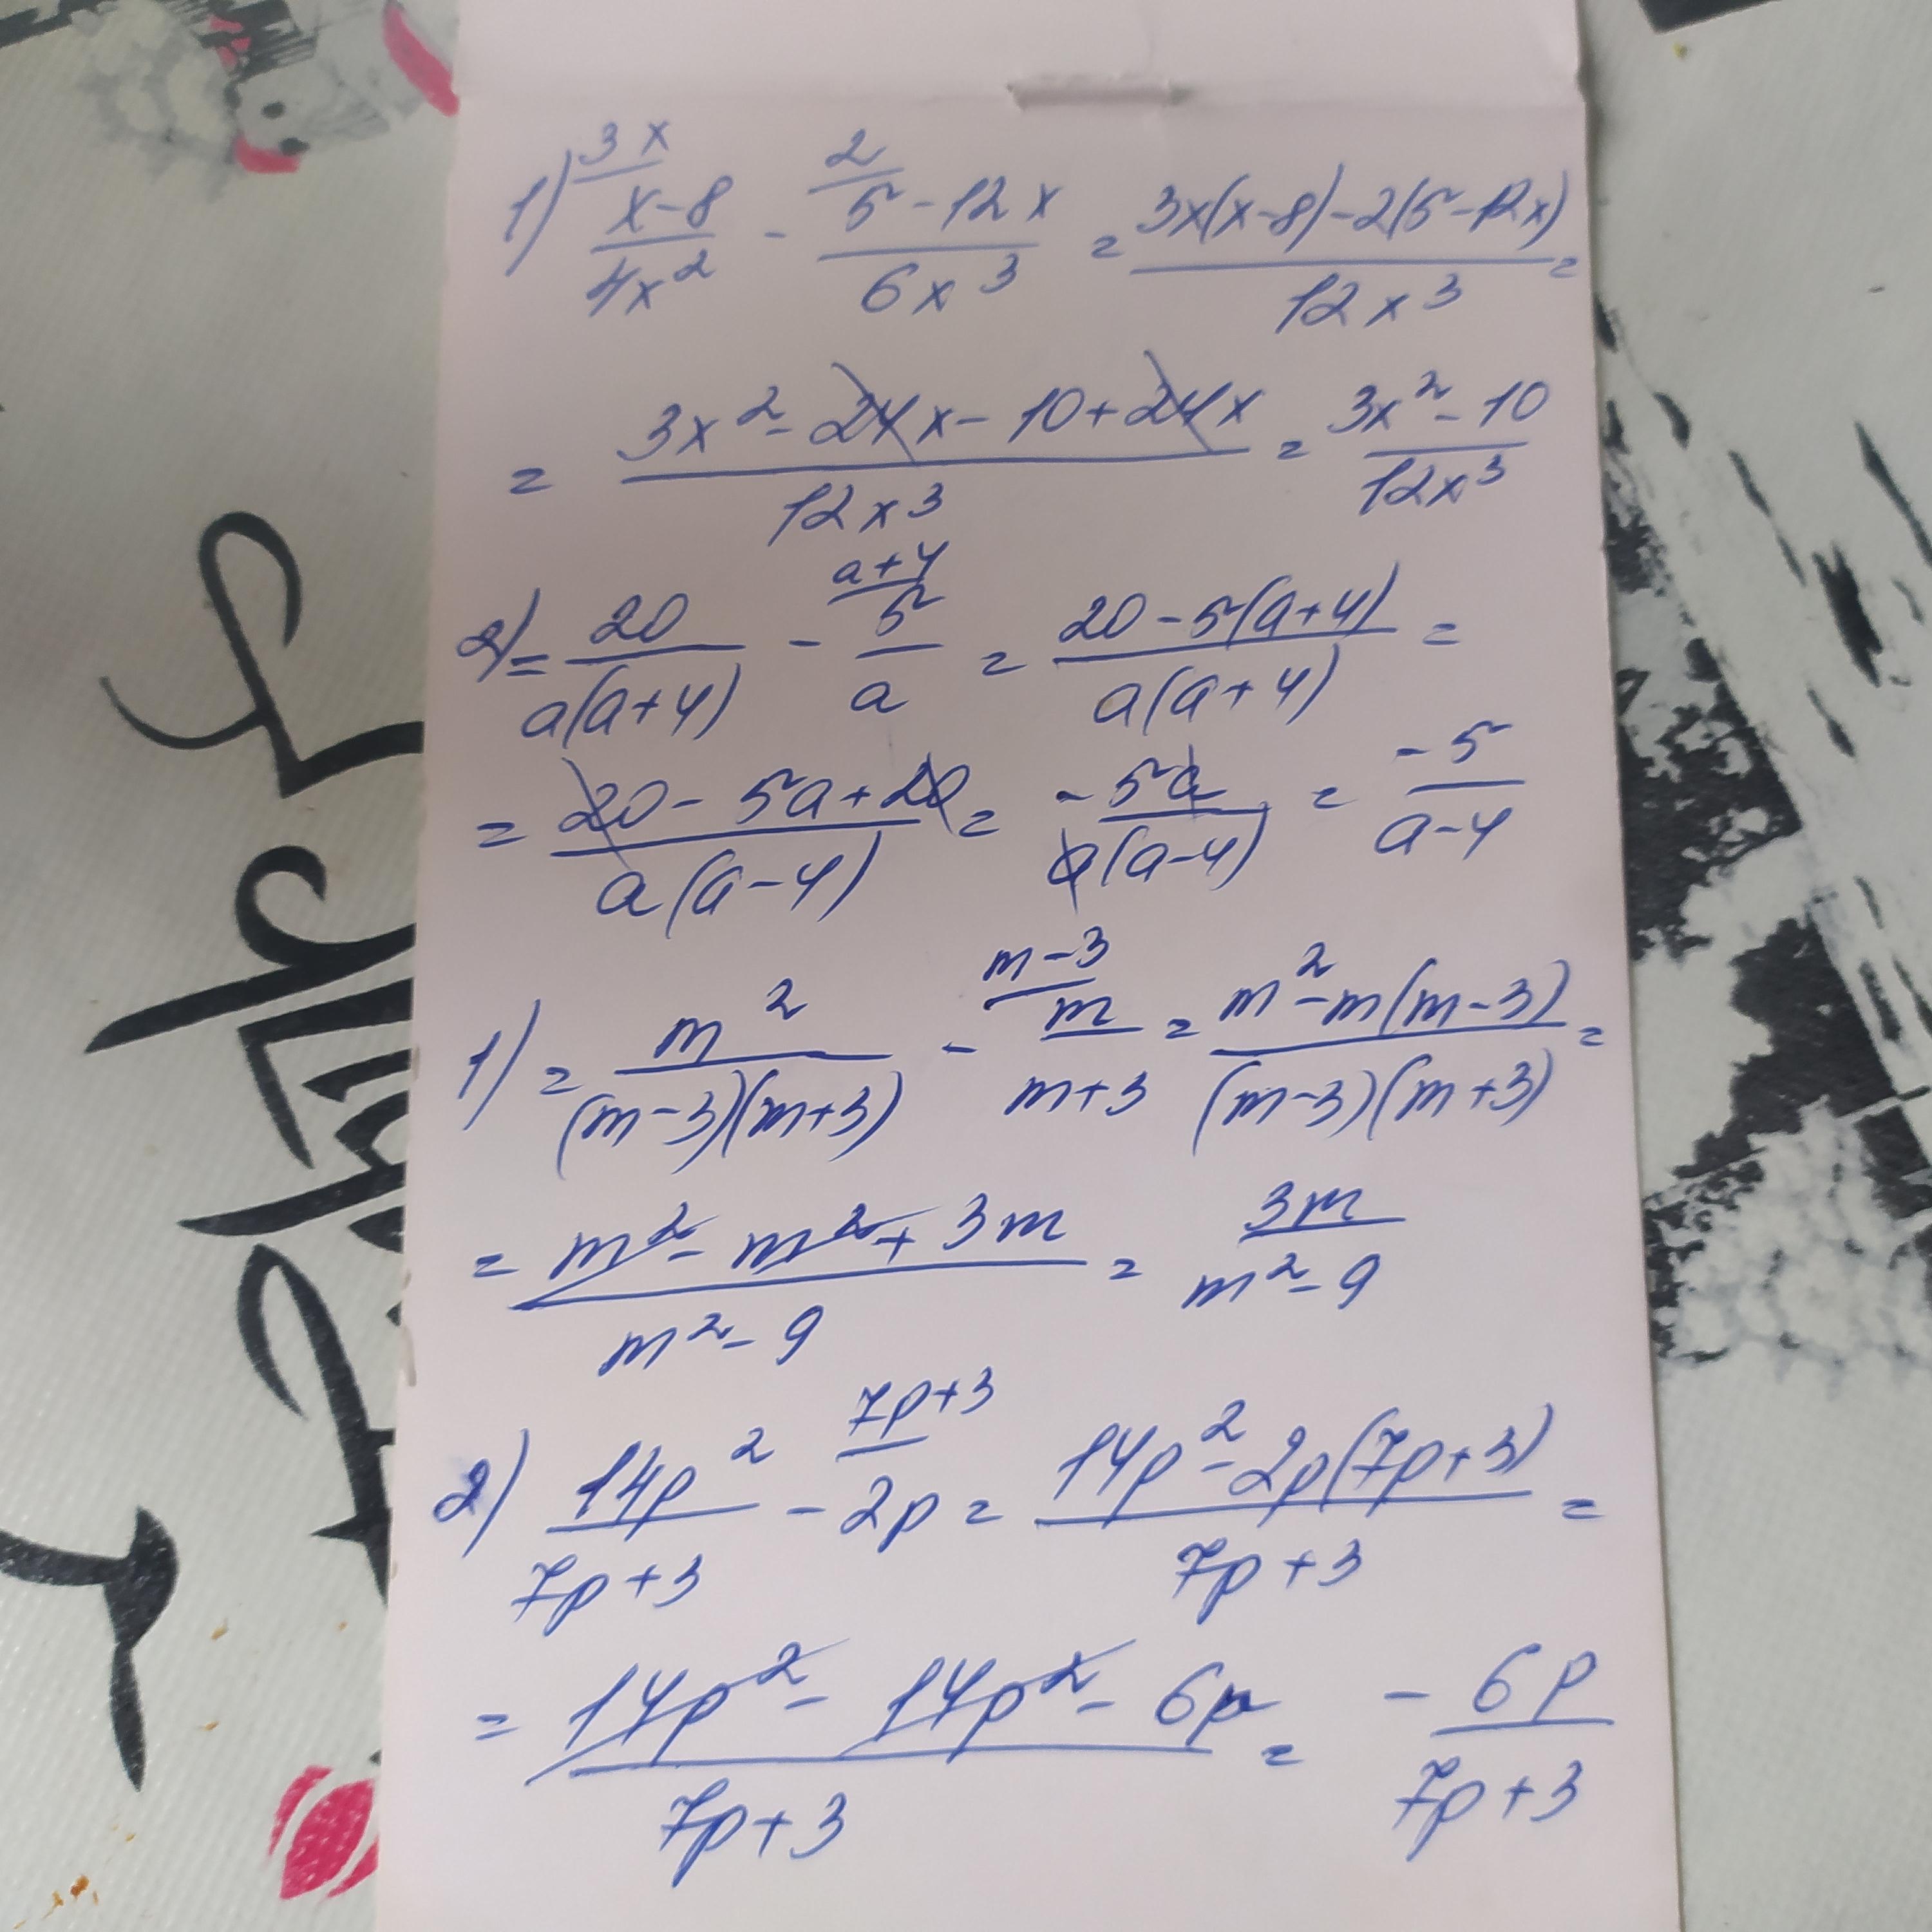 1) 3x/ (x-8)/(4x²) - 2/ (5-12x)/(6x³) = (3x(x-8)-2(5-12x))/(12x³) =
= (3x²-24x-10+24x)/(12x³) = (3x²-10)/(12x³)
2) = 20/(a(a+4)) - a+4/ 5/a = (20-5(a+4))/(a(a+4)) =
= (20-5a+20)/(a(a-4)) = -5a/(a(a-4)) = -5/(a-4)
1) = m²/((m-3)(m+3)) - m-3/ m/(m+3) = (m²-m(m-3))/((m-3)(m+3)) =
= (m²-m²+3m)/(m²-9) = 3m/(m²-9)
2) 14p²/(7p+3) - 7p+3/ 2p = (14p²-2p(7p+3))/(7p+3) =
= (14p²-14p²-6p)/(7p+3) = - 6p/(7p+3)